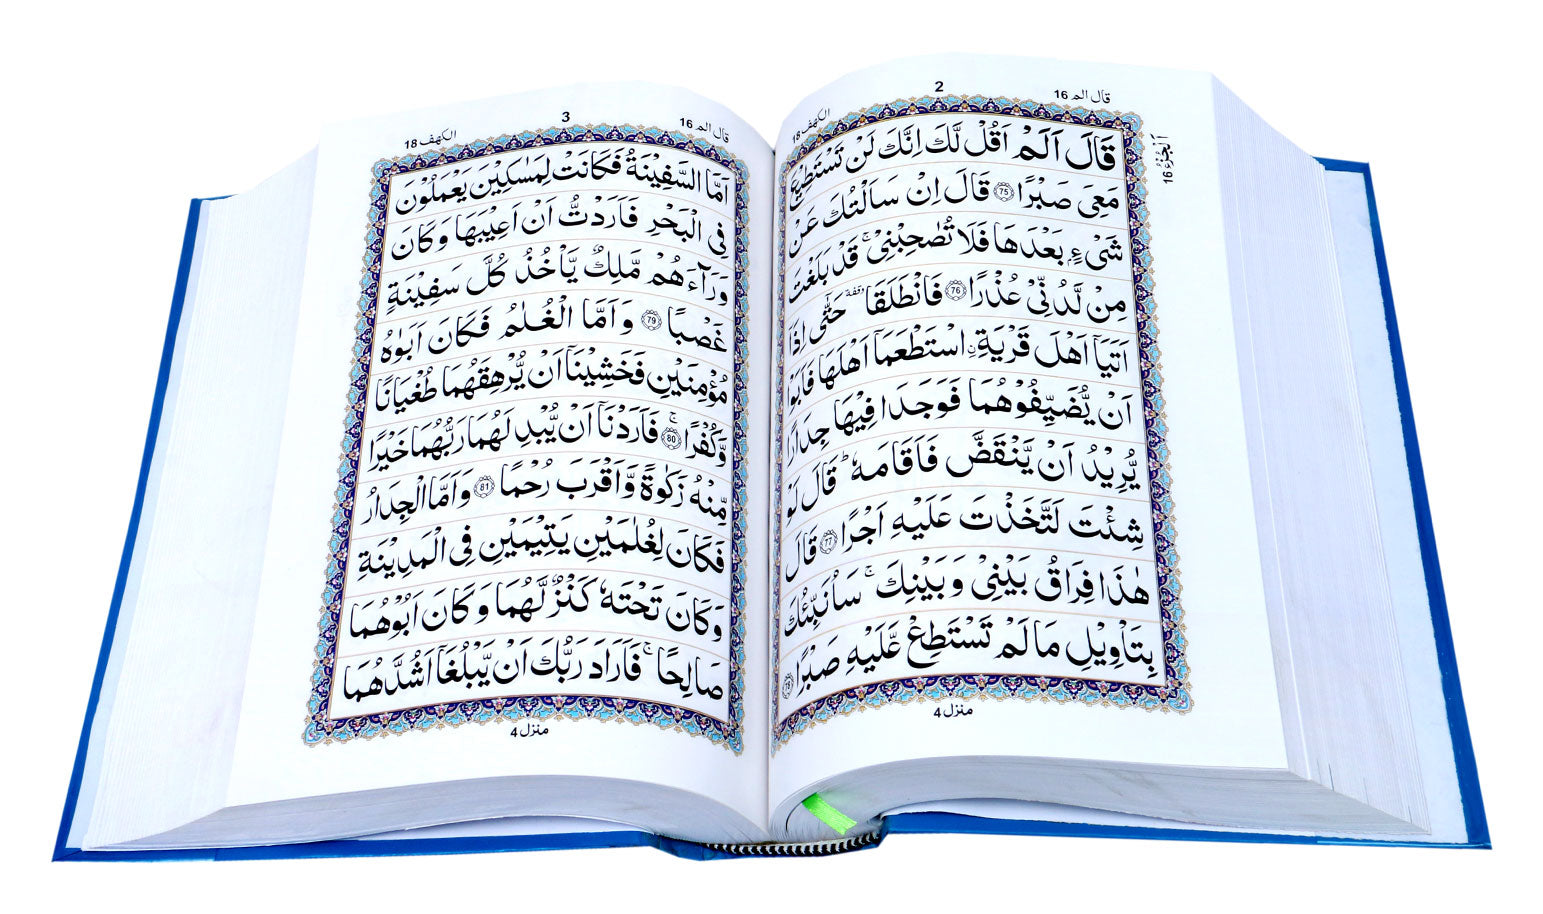 الكهف 18
2
قال الم 16
الجزء 16
قَالَ اَلَمْ اَقُلْ لَّكَ اِنَّكَ لَنْ تَسْتَطِيْعَ
مَعِىَ صَبْرًا ﴿75﴾ قَالَ اِنْ سَاَلْتُكَ عَنْ
شَىْءٍۭ بَعْدَهَا فَلَا تُصٰحِبْنِىْ ۚ قَدْ بَلَغْتَ
مِنْ لَّدُنِّىْ عُذْرًا ﴿76﴾ فَانْطَلَقَا وقفة حَتّٰۤى اِذَاۤ
اَتَيَاۤ اَهْلَ قَرْيَةِ ۨاسْتَطْعَمَاۤ اَهْلَهَا فَاَبَوْا
اَنْ يُّضَيِّفُوْهُمَا فَوَجَدَا فِيْهَا جِدَارًا
يُّرِيْدُ اَنْ يَّنْقَضَّ فَاَقَامَهٗ ؕ قَالَ لَوْ
شِئْتَ لَتَّخَذْتَ عَلَيْهِ اَجْرًا ﴿77﴾ قَالَ
هٰذَا فِرَاقُ بَيْنِىْ وَبَيْنِكَ ۚ سَاُنَبِّئُكَ
بِتَاْوِيْلِ مَا لَمْ تَسْتَطِعْ عَّلَيْهِ صَبْرًا ﴿78﴾
منزل 4
الكهف 18
3
قال الم 16
اَمَّا السَّفِيْنَةُ فَكَانَتْ لِمَسٰكِيْنَ يَعْمَلُوْنَ
فِى الْبَحْرِ فَاَرَدْتُّ اَنْ اَعِيْبَهَا وَكَانَ
وَرَآءَهُمْ مَّلِكٌ يَّاْخُذُ كُلَّ سَفِيْنَةٍ
غَصْبًا ﴿79﴾ وَاَمَّا الْغُلٰمُ فَكَانَ اَبَوٰهُ
مُؤْمِنَيْنِ فَخَشِيْنَاۤ اَنْ يُّرْهِقَهُمَا طُغْيَانًا
وَّكُفْرًا ۚ ﴿80﴾ فَاَرَدْنَاۤ اَنْ يُّبْدِلَهُمَا رَبُّهُمَا خَيْرًا
مِّنْهُ زَكٰوةً وَّاَقْرَبَ رُحْمًا ﴿81﴾ وَاَمَّا الْجِدَارُ
فَكَانَ لِغُلٰمَيْنِ يَتِيْمَيْنِ فِى الْمَدِيْنَةِ
وَكَانَ تَحْتَهٗ كَنْزٌ لَّهُمَا وَكَانَ اَبُوْهُمَا
صَالِحًا ۚ فَاَرَادَ رَبُّكَ اَنْ يَّبْلُغَاۤ اَشُدَّهُمَا
منزل 4